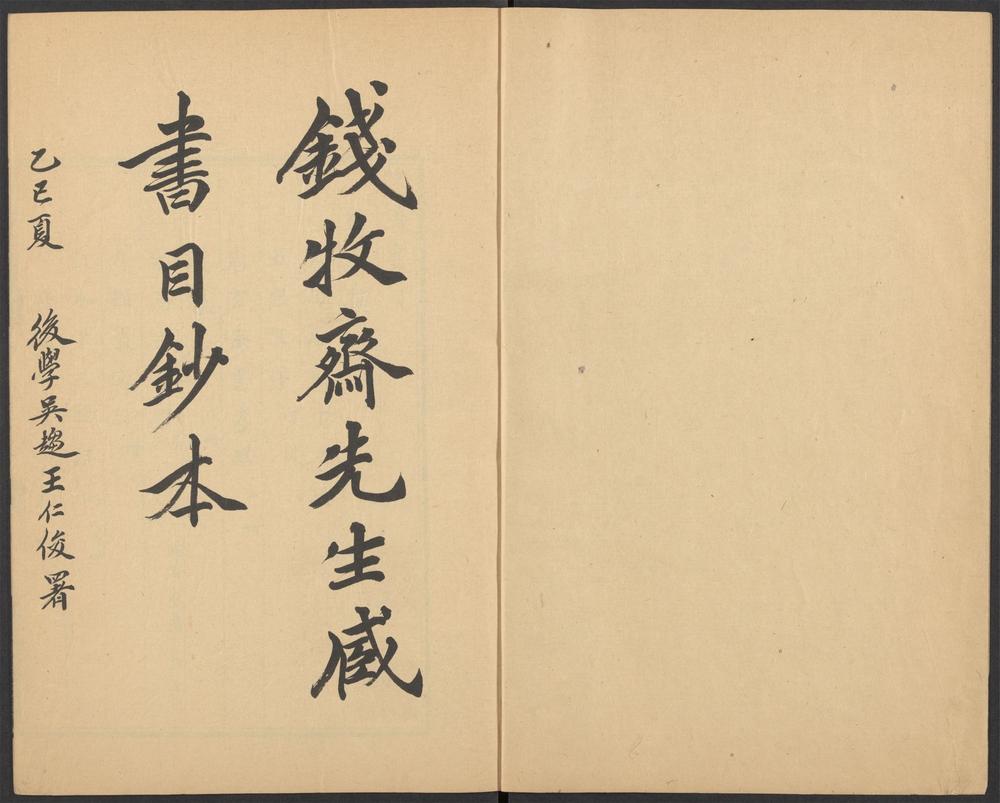 錢牧齋先生臧
書目鈔本
乙巳夏 後學吳趨王仁俊署